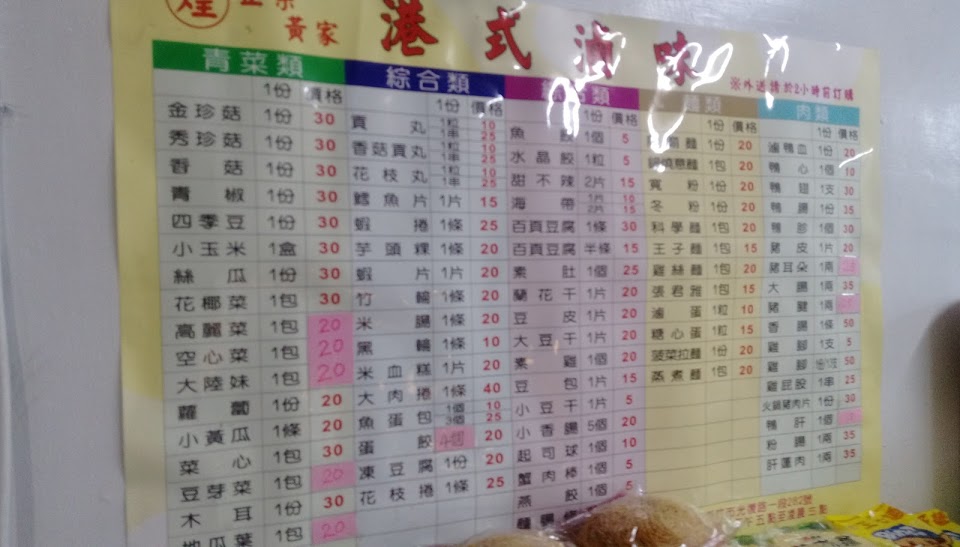 煌
黃家
港式滷味
※外送請於2小時前訂購
青菜類
1份 價格
金珍菇 1份 30
秀珍菇 1份 30
香菇 1份 30
青椒 1份 30
四季豆 1份 30
小玉米 1盒 30
絲瓜 1份 30
花椰菜 1包 30
高麗菜 1包 20
空心菜 1包 20
大陸妹 1包 20
蘿蔔 1份 20
小黃瓜 1條 20
菜心 1包 30
豆芽菜 1包 20
木耳 1份 30
地瓜葉 1包 20
綜合類
1份 價格
貢丸 1粒 10 1串 25
香菇貢丸 1粒 10 1串 25
花枝丸 1粒 10 1串 25
鱈魚片 1片 15
蝦捲 1條 25
芋頭粿 1條 20
蝦片 1片 20
竹輪 1條 20
米腸 1條 20
黑輪 1條 10
米血糕 1片 20
大肉捲 1條 40
魚蛋包 1個 10 3個 25
蛋餃 4個 20
凍豆腐 1份 20
花枝捲 1條 25
綜合類
1份 價格
魚餃 1個 5
水晶餃 1粒 5
甜不辣 2片 15
海帶 1片 10 2片 15
百頁豆腐 1條 30
百頁豆腐 半條 15
素肚 1個 25
蘭花干 1片 20
豆皮 1片 20
大豆干 1片 20
素雞 1個 20
豆包 1片 15
小豆干 1片 5
小香腸 5個 20
起司球 1個 10
蟹肉棒 1個 5
燕餃 1個 5
類
1份 價格
麵 1份 20
鍋燒意麵 1包 20
寬粉 1份 20
冬粉 1份 20
科學麵 1包 20
王子麵 1包 15
雞絲麵 1包 20
張君雅 1包 15
滷蛋 1粒 10
糖心蛋 1粒 15
菠菜拉麵 1份 20
蒸煮麵 1包 20
肉類
1份 價格
滷鴨血 1份 20
鴨心 1個 10
鴨翅 1支 30
鴨腸 1份 35
鴨胗 1個 30
豬皮 1片 20
豬耳朵 1兩
大腸 1兩 35
豬腱 1兩
香腸 1條 50
雞腳 1支 5
雞腳 50
雞屁股 1串 25
火鍋豬肉片 1份 30
鴨肝 1個
粉腸 1兩 35
肝蓮肉 1兩 35
市光復路一段282號
五點至凌晨三點